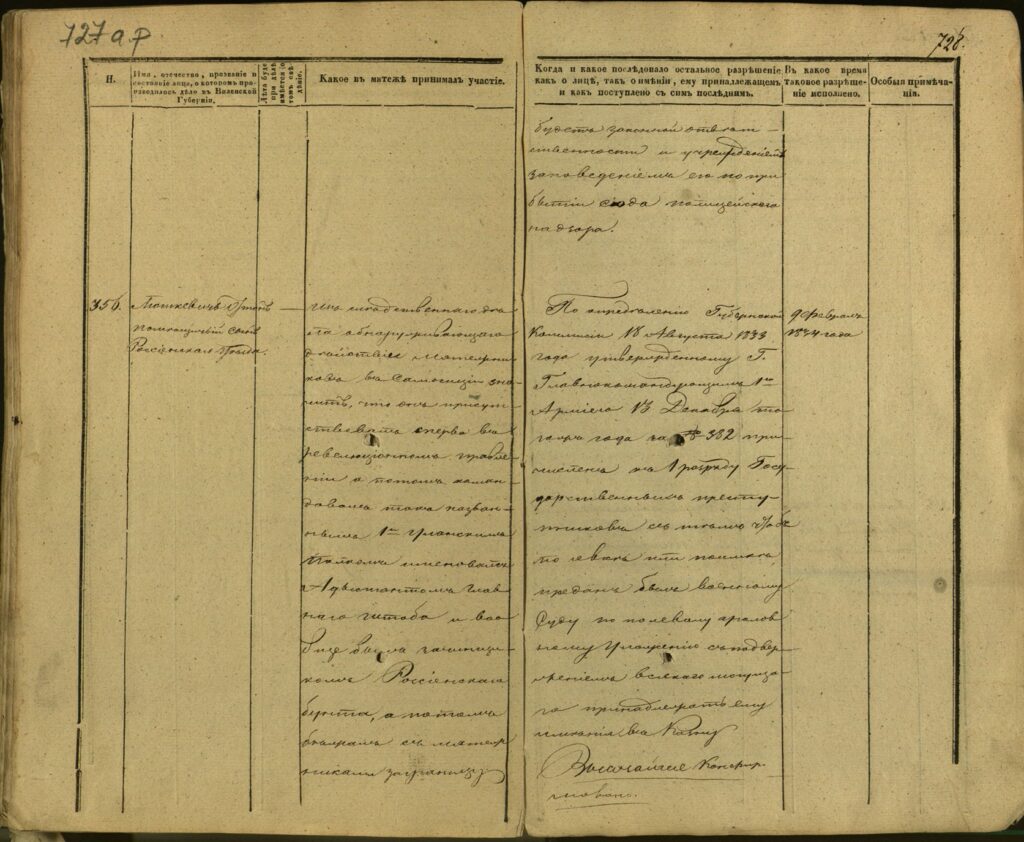 127 ар
728.
Н.
Имя, отечество, прозваніе и
состояніе лица, о которомъ про-
изводилось дѣло въ Виленской
Губерніи.
Лѣта буде
при дѣлѣ
имѣется о
томъ свѣ-
дѣніе.
Какое въ мятежѣ принималъ участіе.
Когда и какое послѣдовало остальное разрѣшеніе
какъ о лицѣ, такъ о имѣніи, ему принадлежащемъ
и какъ поступлено съ симъ послѣднимъ.
Въ какое время
таковое разрѣше-
ніе исполнено.
Особыя примѣча-
нія.
будетъ законной отвѣт-
ственности и учрежденіемъ
заведеніемъ его по при
бытіи сюда полицейскаго
надзора.
356.
помѣщичій сынъ
Россіенскаго уѣзда.
изъ слѣдственнаго дѣ
ла обнаруживающаго
дѣйствіе мятежни
ковъ въ Самогиціи зна
читъ, что онъ присут
ствовалъ сперва въ
революціонномъ правле
ніи а потомъ коман
довалъ такъ назван
нымъ 1мъ Уланскимъ
полкомъ именовался
Адъютантомъ глав
наго штаба и воо
бще былъ зачинщи
комъ Россіенскаго
бунта, а потомъ
бѣжалъ съ мятеж
никами заграницу
По опредѣленію Губернской
Коммисіи 18 Августа 1833
года утвержденному Г.
Главнокомандующимъ 1ю
Арміею 13 Декабря то
гожъ года за № 382 при
численъ къ 1 розряду Госу-
дарственныхъ престу
пниковъ съ тѣмъ чтобъ
по явкѣ или поимкѣ
преданъ былъ военному
Суду по полевому уголов
ному Уложенію съ подвер
женіемъ всякаго могуща
го принадлежать ему
имѣнія въ Казну
Высочайше Конфир
мовано.
9 Февраля
1834 года